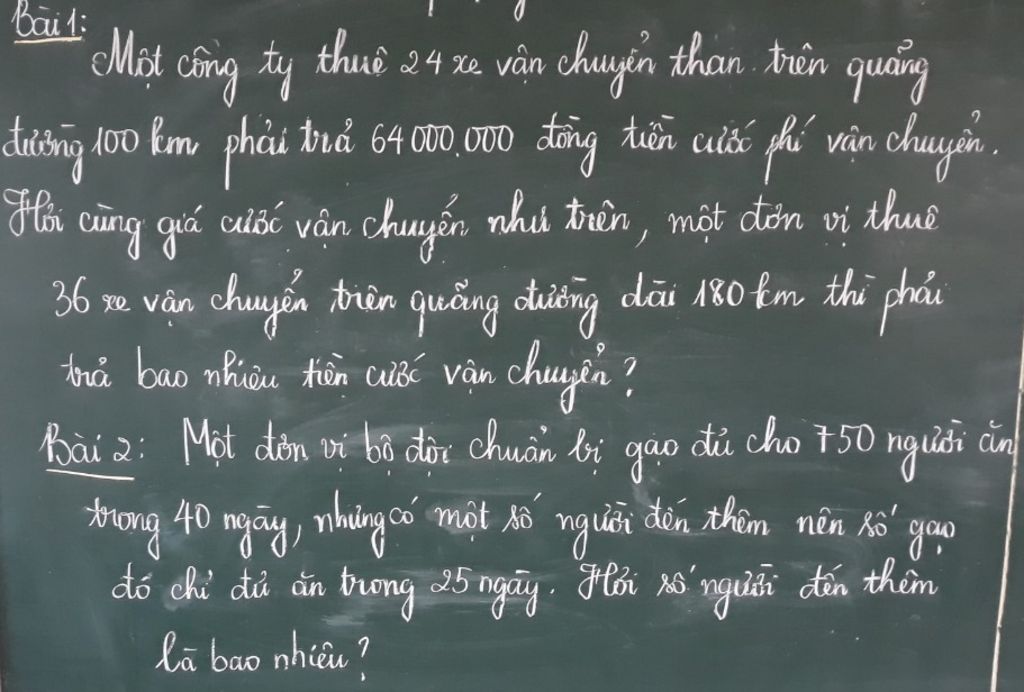 Bài 1:
Một công ty thuê 24 xe vận chuyển than trên quãng
đường 100 km phải trả 64 000.000 đồng tiền cước phí vận chuyển.
Hỏi cùng giá cước vận chuyển như trên, một đơn vị thuê
36 xe vận chuyển trên quãng đường dài 180 km thì phải
trả bao nhiêu tiền cước vận chuyển?
Bài 2: Một đơn vị bộ đội chuẩn bị gạo đủ cho 750 người ăn
trong 40 ngày, nhưng có một số người đến thêm nên số gạo
đó chỉ đủ ăn trong 25 ngày. Hỏi số người đến thêm
là bao nhiêu?